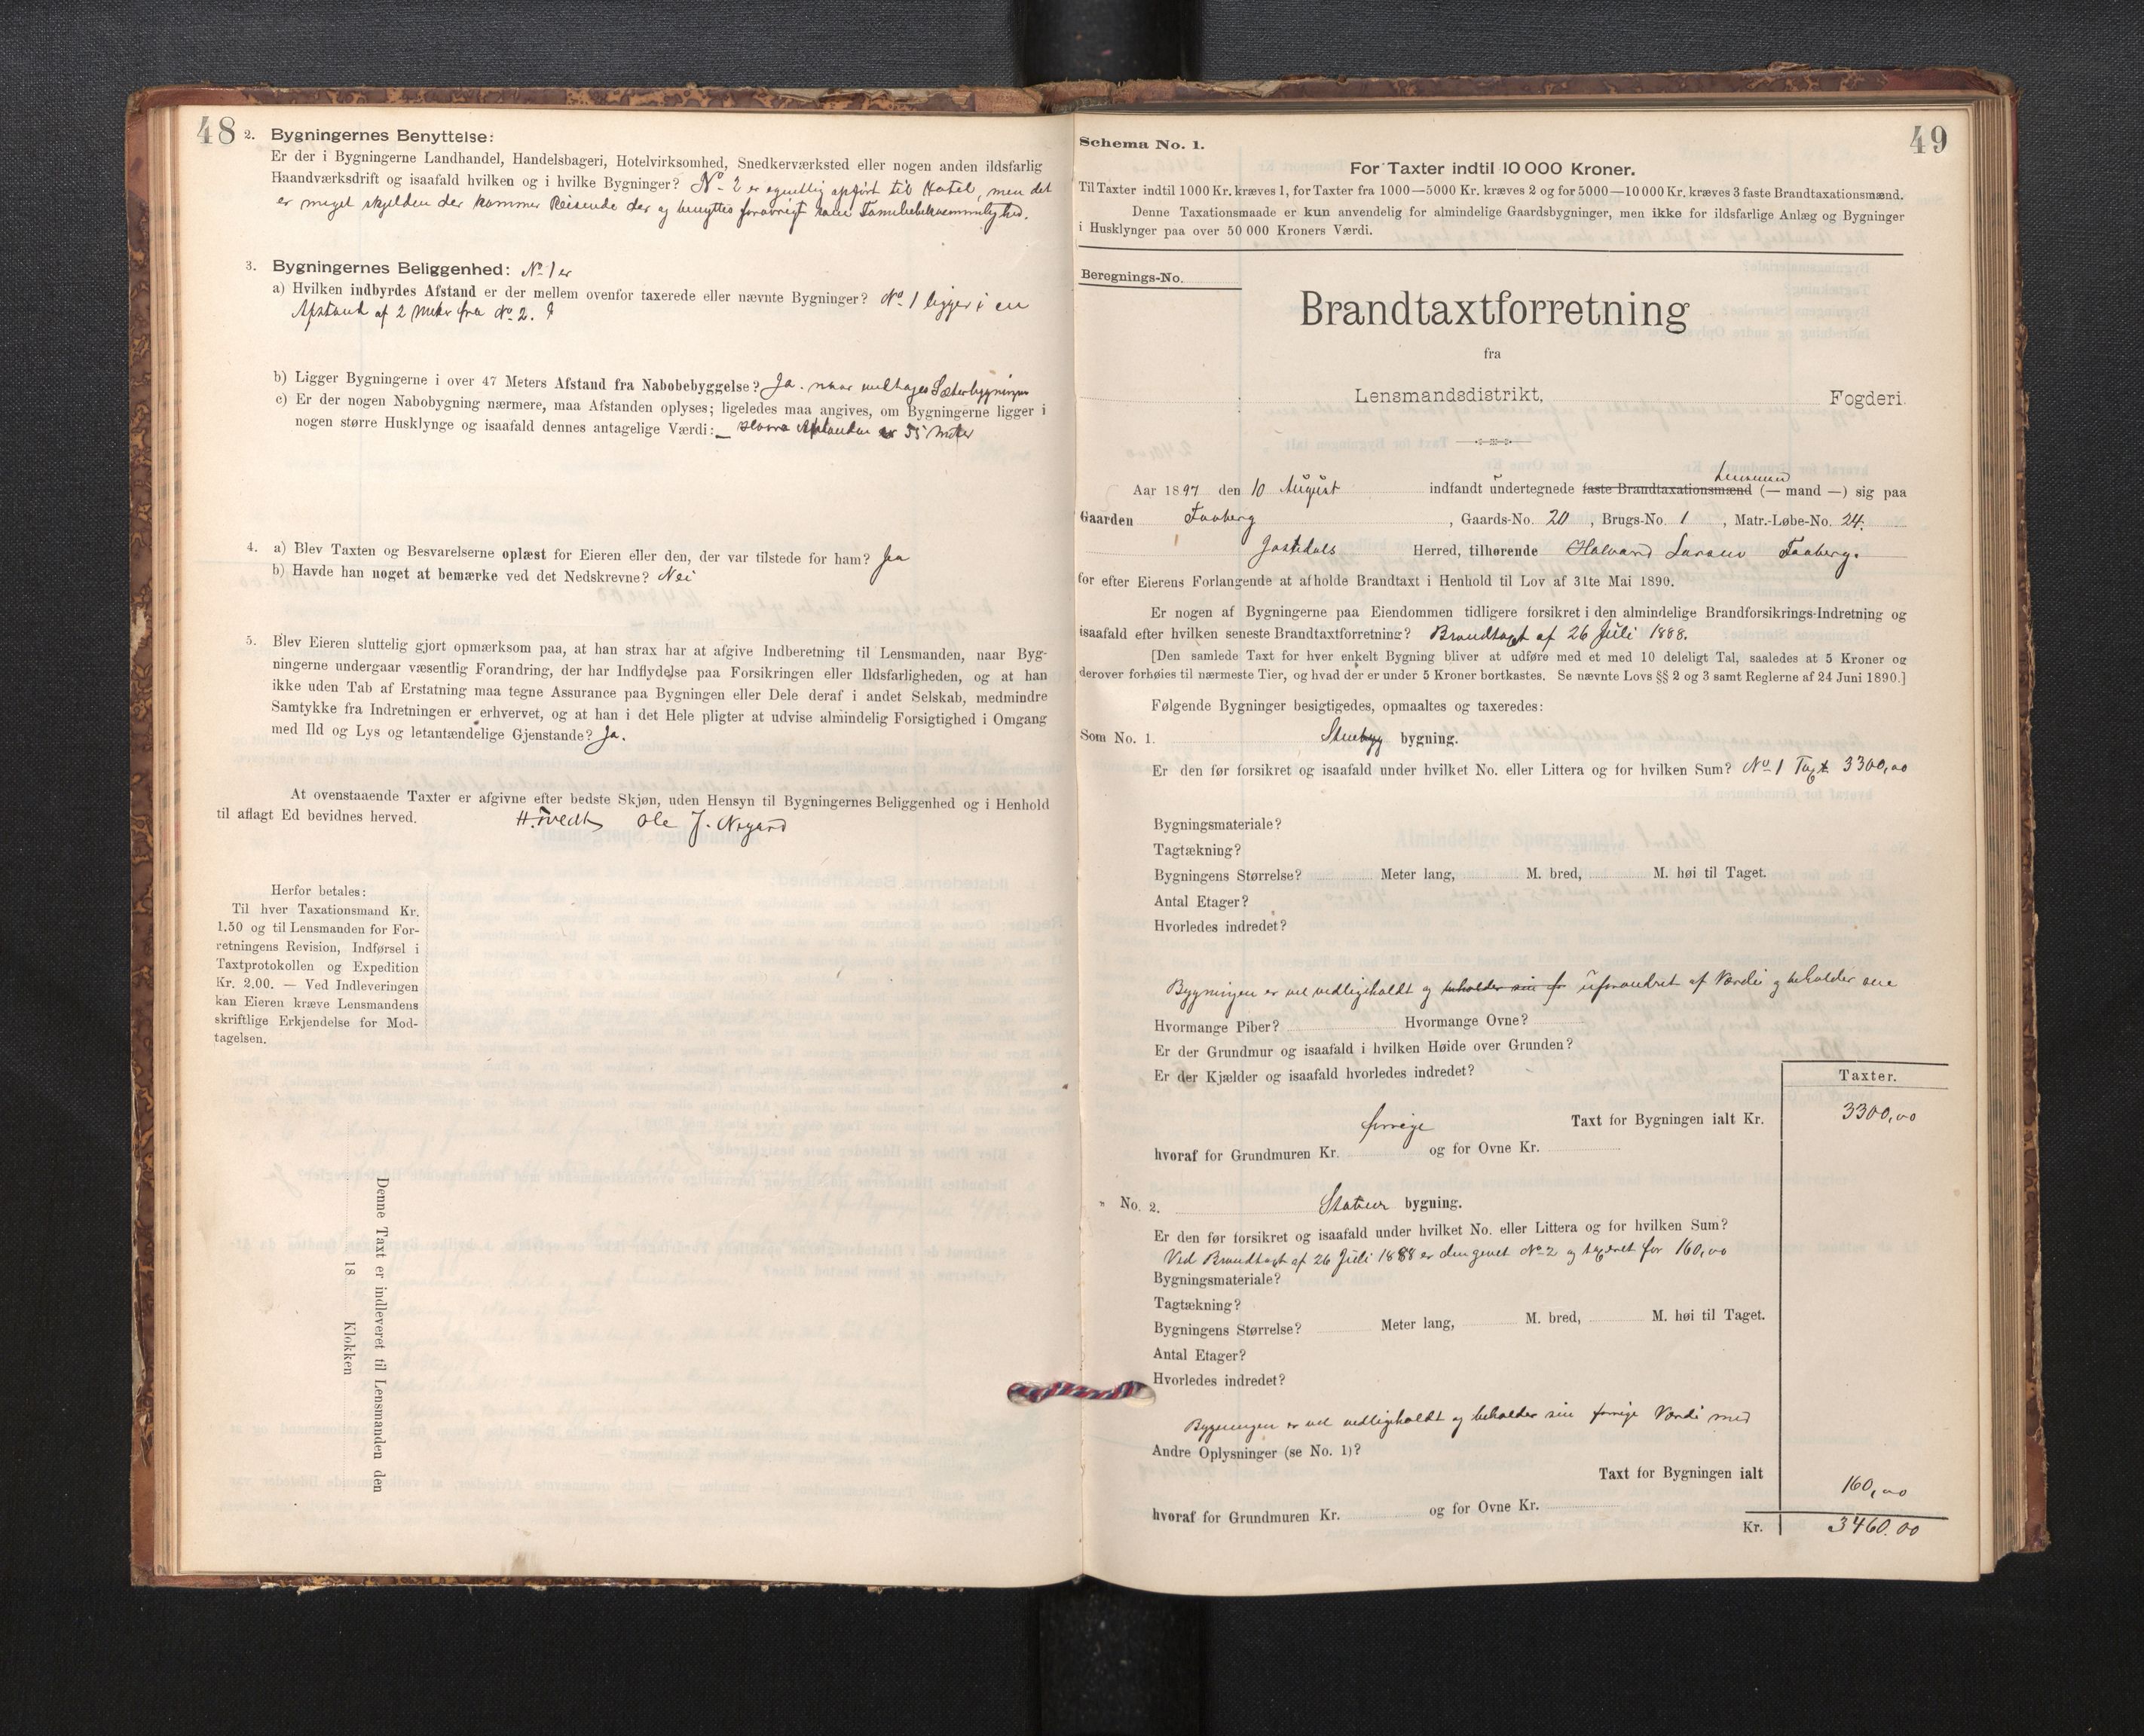 48
2. Bygningernes Benyttelse:
Er der i Bygningerne Landhandel, Handelsbageri, Hotelvirksomhed, Snedkerværksted eller nogen anden ildsfarlig
Haandværksdrift og isaafald hvilken og i hvilke Bygninger? No 2 er egentlig opført til Hotel, men det
er meget skjelden der kommer Reisende der og benyttes forøvrigt som Familiebekvemmelighed.
3. Bygningernes Beliggenhed: No 1 er
a) Hvilken indbyrdes Afstand er der mellem ovenfor taxerede eller nævnte Bygninger? No 1 ligger i en
Afstand af 2 Meter fra No 2.
b) Ligger Bygningerne i over 47 Meters Afstand fra Nabobebyggelse? Ja. naar undtages Sæterbygningen
c) Er der nogen Nabobygning nærmere, maa Afstanden oplyses; ligeledes maa angives, om Bygningerne ligger i
nogen større Husklynge og isaafald dennes antagelige Værdi: Afstanden er 35 Meter
4. a) Blev Taxten og Besvarelserne oplæst for Eieren eller den, der var tilstede for ham? Ja
b) Havde han noget at bemærke ved det Nedskrevne? Nei
5. Blev Eieren sluttelig gjort opmærksom paa, at han strax har at afgive Indberetning til Lensmanden, naar Byg-
ningerne undergaar væsentlig Forandring, der har Indflydelse paa Forsikringen eller Ildsfarligheden, og at han
ikke uden Tab af Erstatning maa tegne Assurance paa Bygningen eller Dele deraf i andet Selskab, medmindre
Samtykke fra Indretningen er erhvervet, og at han i det Hele pligter at udvise almindelig Forsigtighed i Omgang
med Ild og Lys og letantændelige Gjenstande? Ja.
At ovenstaaende Taxter er afgivne efter bedste Skjøn, uden Hensyn til Bygningernes Beliggenhed og i Henhold
til aflagt Ed bevidnes herved. H. Tvedt Ole J. Nygard
Herfor betales:
Til hver Taxationsmand Kr.
1.50 og til Lensmanden for For-
retningens Revision, Indførsel i
Taxtprotokollen og Expedition
Kr. 2.00. — Ved Indleveringen
kan Eieren kræve Lensmandens
skriftlige Erkjendelse for Mod-
tagelsen.
Denne Taxt er indleveret til Lensmanden den
18 Klokken
49
Schema No. 1.
For Taxter indtil 10 000 Kroner.
Til Taxter indtil 1000 Kr. kræves 1, for Taxter fra 1000—5000 Kr. kræves 2 og for 5000—10 000 Kr. kræves 3 faste Brandtaxationsmænd.
Denne Taxationsmaade er kun anvendelig for almindelige Gaardsbygninger, men ikke for ildsfarlige Anlæg og Bygninger
i Husklynger paa over 50 000 Kroners Værdi.
Beregnings-No.
Brandtaxtforretning
fra
Lensmandsdistrikt, Fogderi.
Lensmand
Aar 1897 den 10 August indfandt undertegnede faste Brandtaxationsmænd (— mand —) sig paa
Gaarden Faaberg, Gaards-No. 20, Brugs-No. 1, Matr.-Løbe-No. 24.
Jostedals Herred, tilhørende Halvard Larsen Faaberg.
for efter Eierens Forlangende at afholde Brandtaxt i Henhold til Lov af 31te Mai 1890.
Er nogen af Bygningerne paa Eiendommen tidligere forsikret i den almindelige Brandforsikrings-Indretning og
isaafald efter hvilken seneste Brandtaxtforretning? Brandtaxt af 26 Juli 1888.
[Den samlede Taxt for hver enkelt Bygning bliver at udføre med et med 10 deleligt Tal, saaledes at 5 Kroner og
derover forhøies til nærmeste Tier, og hvad der er under 5 Kroner bortkastes. Se nævnte Lovs §§ 2 og 3 samt Reglerne af 24 Juni 1890.]
Følgende Bygninger besigtigedes, opmaaltes og taxeredes:
Som No. 1. Stuebyg bygning.
Er den før forsikret og isaafald under hvilket No. eller Littera og for hvilken Sum? No 1 Taxt 3300,00
Bygningsmateriale?
Tagtækning?
Bygningens Størrelse? Meter lang, M. bred, M. høi til Taget.
Antal Etager?
Hvorledes indredet?
Bygningen er vel vedligeholdt og beholder sin fr uforandret af Værdi og beholder sine
Hvormange Piber? Hvormange Ovne?
Er der Grundmur og isaafald i hvilken Høide over Grunden?
Er der Kjælder og isaafald hvorledes indredet?
Taxter.
forrige Taxt for Bygningen ialt Kr. 3300,00
hvoraf for Grundmuren Kr. og for Ovne Kr.
" No. 2. Stabur bygning.
Er den før forsikret og isaafald under hvilket No. eller Littera og for hvilken Sum?
Ved Brandtaxt af 26 Juli 1888 er den givet No 2 og taxeret for 160,00
Bygningsmateriale?
Tagtækning?
Bygningens Størrelse? Meter lang, M. bred, M. høi til Taget.
Antal Etager?
Hvorledes indredet?
Bygningen er vel vedligeholdt og beholder sin forrige Værdi med
Andre Oplysninger (se No. 1)?
Taxt for Bygningen ialt 160,00
hvoraf for Grundmuren Kr. og for Ovne Kr.
Kr. 3460.00